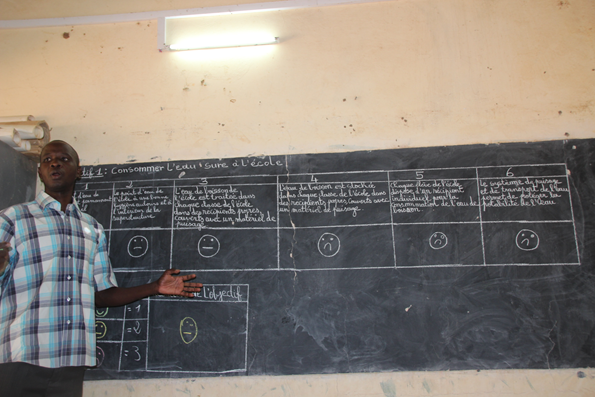 tif 1: Consommer l'eau sure à l'école
1
3
4
5
6
permanent
Le point d'eau de
l'école, a une bonne
hygiène autour et à
l'intérieur de la
superstructure
L'eau de boisson de
l'école est traitée dans
chaque classe de l'école
dans des récipients propres,
couverts avec un matériel de
puisage
L'eau de boisson est stockée
dans chaque classe de l'école dans
des récipients propres, couverts avec
un matériel de puisage.
Chaque élève de l'école
dispose d'un récipient
individuel pour la
consommation de l'eau de
boisson
Le système de puisage
et de transport de l'eau
permet de protéger la
potabilité de l'eau
L'objectif
= 1
= 2
= 3